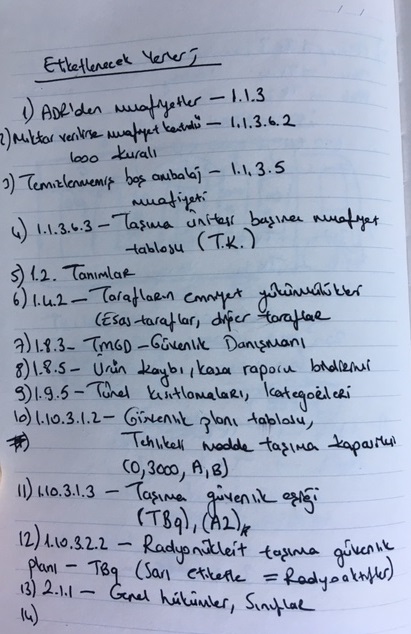 Etiketlenecek Yerler;
1) ADR'den muafiyetler – 1.1.3
2) Miktar verilirse muafiyet kontrolü – 1.1.3.6.2
1000 kuralı
3) Temizlenmemiş boş ambalaj – 1.1.3.5
muafiyeti
4) 1.1.3.6.3 – Taşıma ünitesi başına muafiyet
tablosu (T.K.)
5) 1.2. Tanımlar
6) 1.4.2 – Tarafların emniyet yükümlülükleri
(Esas taraflar, diğer taraflar
7) 1.8.3 – TMGD – Güvenlik Danışmanı
8) 1.8.5 – Ürün kaybı, kaza raporu bildirimi
9) 1.9.5 – Tünel kısıtlamaları, kategorileri
10) 1.10.3.1.2 – Güvenlik planı tablosu,
Tehlikeli madde taşıma kapasitesi
(0,3000, A, B)
11) 1.10.3.1.3 – Taşıma güvenlik eşiği
(TBq), (A2)
12) 1.10.3.2.2 – Radyonükleit taşıma güvenlik
planı – TBq (Sarı etiketle = Radyoaktifler)
13) 2.1.1 – Genel hükümler, Sınıflar
14)